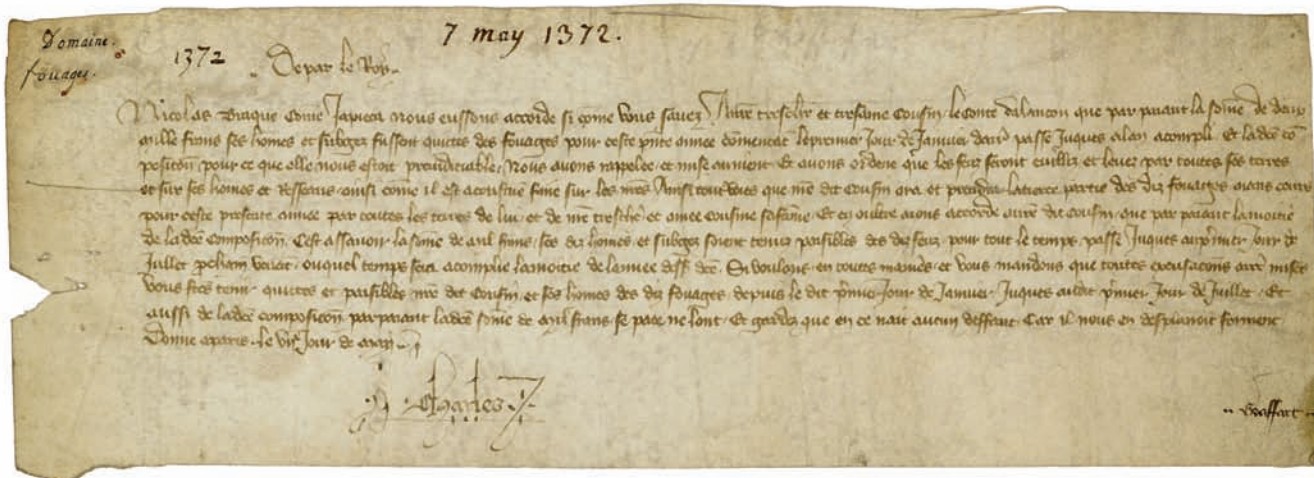 Domaine.
fouages.
7 may 1372.
1372
De par le Roy
Nicolas Braque Comme Japieca nous eussons accorde si come vous savez A nre treschier et tresame Cousin le conte dalancon que par paiant la some de deux
mille frans ses homes et subgez fussent quictes des fouages pour ceste pnte annee comencant le premier Jour de Janvier darr passe Juques a lan acompli Et lade com
positon pour ce que elle nous estoit preiudiciable Nous avons rappellee et mise au nient Et avons ordene que les feux seront cuilliz et levez par toutes ses terres
et sur ses homes et Ressears ainsi come il est acoustume sur les nres Ainsi toutevoies que nre dit Cousin ara et prendra la tierce partie des diz fouages avans cours
pour ceste presente annee par toutes les terres de lui et de nre treschere et amee Cousine sa fame Et en oultre avons accorde a nre dit Cousin que par paiant la moitie
de lade Compositon Cest assavoir la some de mil frans ses diz homes et subgez soient tenuz paisibles des diz feux pour tout le temps passe Juques au prmier Jour de
Juillet pcham venant ouquel temps sera acomplie la moitie de lannee dess dce Si voulons en toutes manies et vous mandons que toutes excusacons arr mises
vous faites tenir quictes et paisibles nre dit Cousin et ses homes des diz fouages depuis le dit prmier Jour de Janvier Juques audit prmier Jour de Juillet Et
aussi de lade compositon par paiant lade some de mil frans se paie ne lont Et gardez que en ce nait aucun deffaut Car il nous en desplairoit forment
Donne a paris le vije Jour de may
Charles